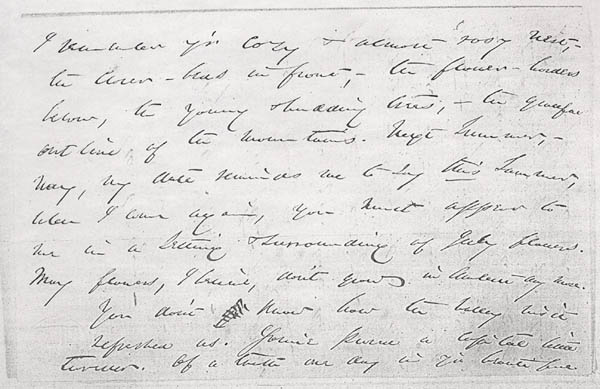 I remember yr. cozy & almost rosy nest,-
the clover-beds in front,- the flower-borders
below, the young & budding trees,- the graceful
outline of the mountains. Next Summer,-
nay, my date reminds me to say this Summer,
when I come again, you must appear to
me in a setting & surrounding of July flowers.
May flowers, I believe, don't grow in any more.
You don't know how the valley visit
refreshed us. You've a capital
of a truth one day in yr. beautiful